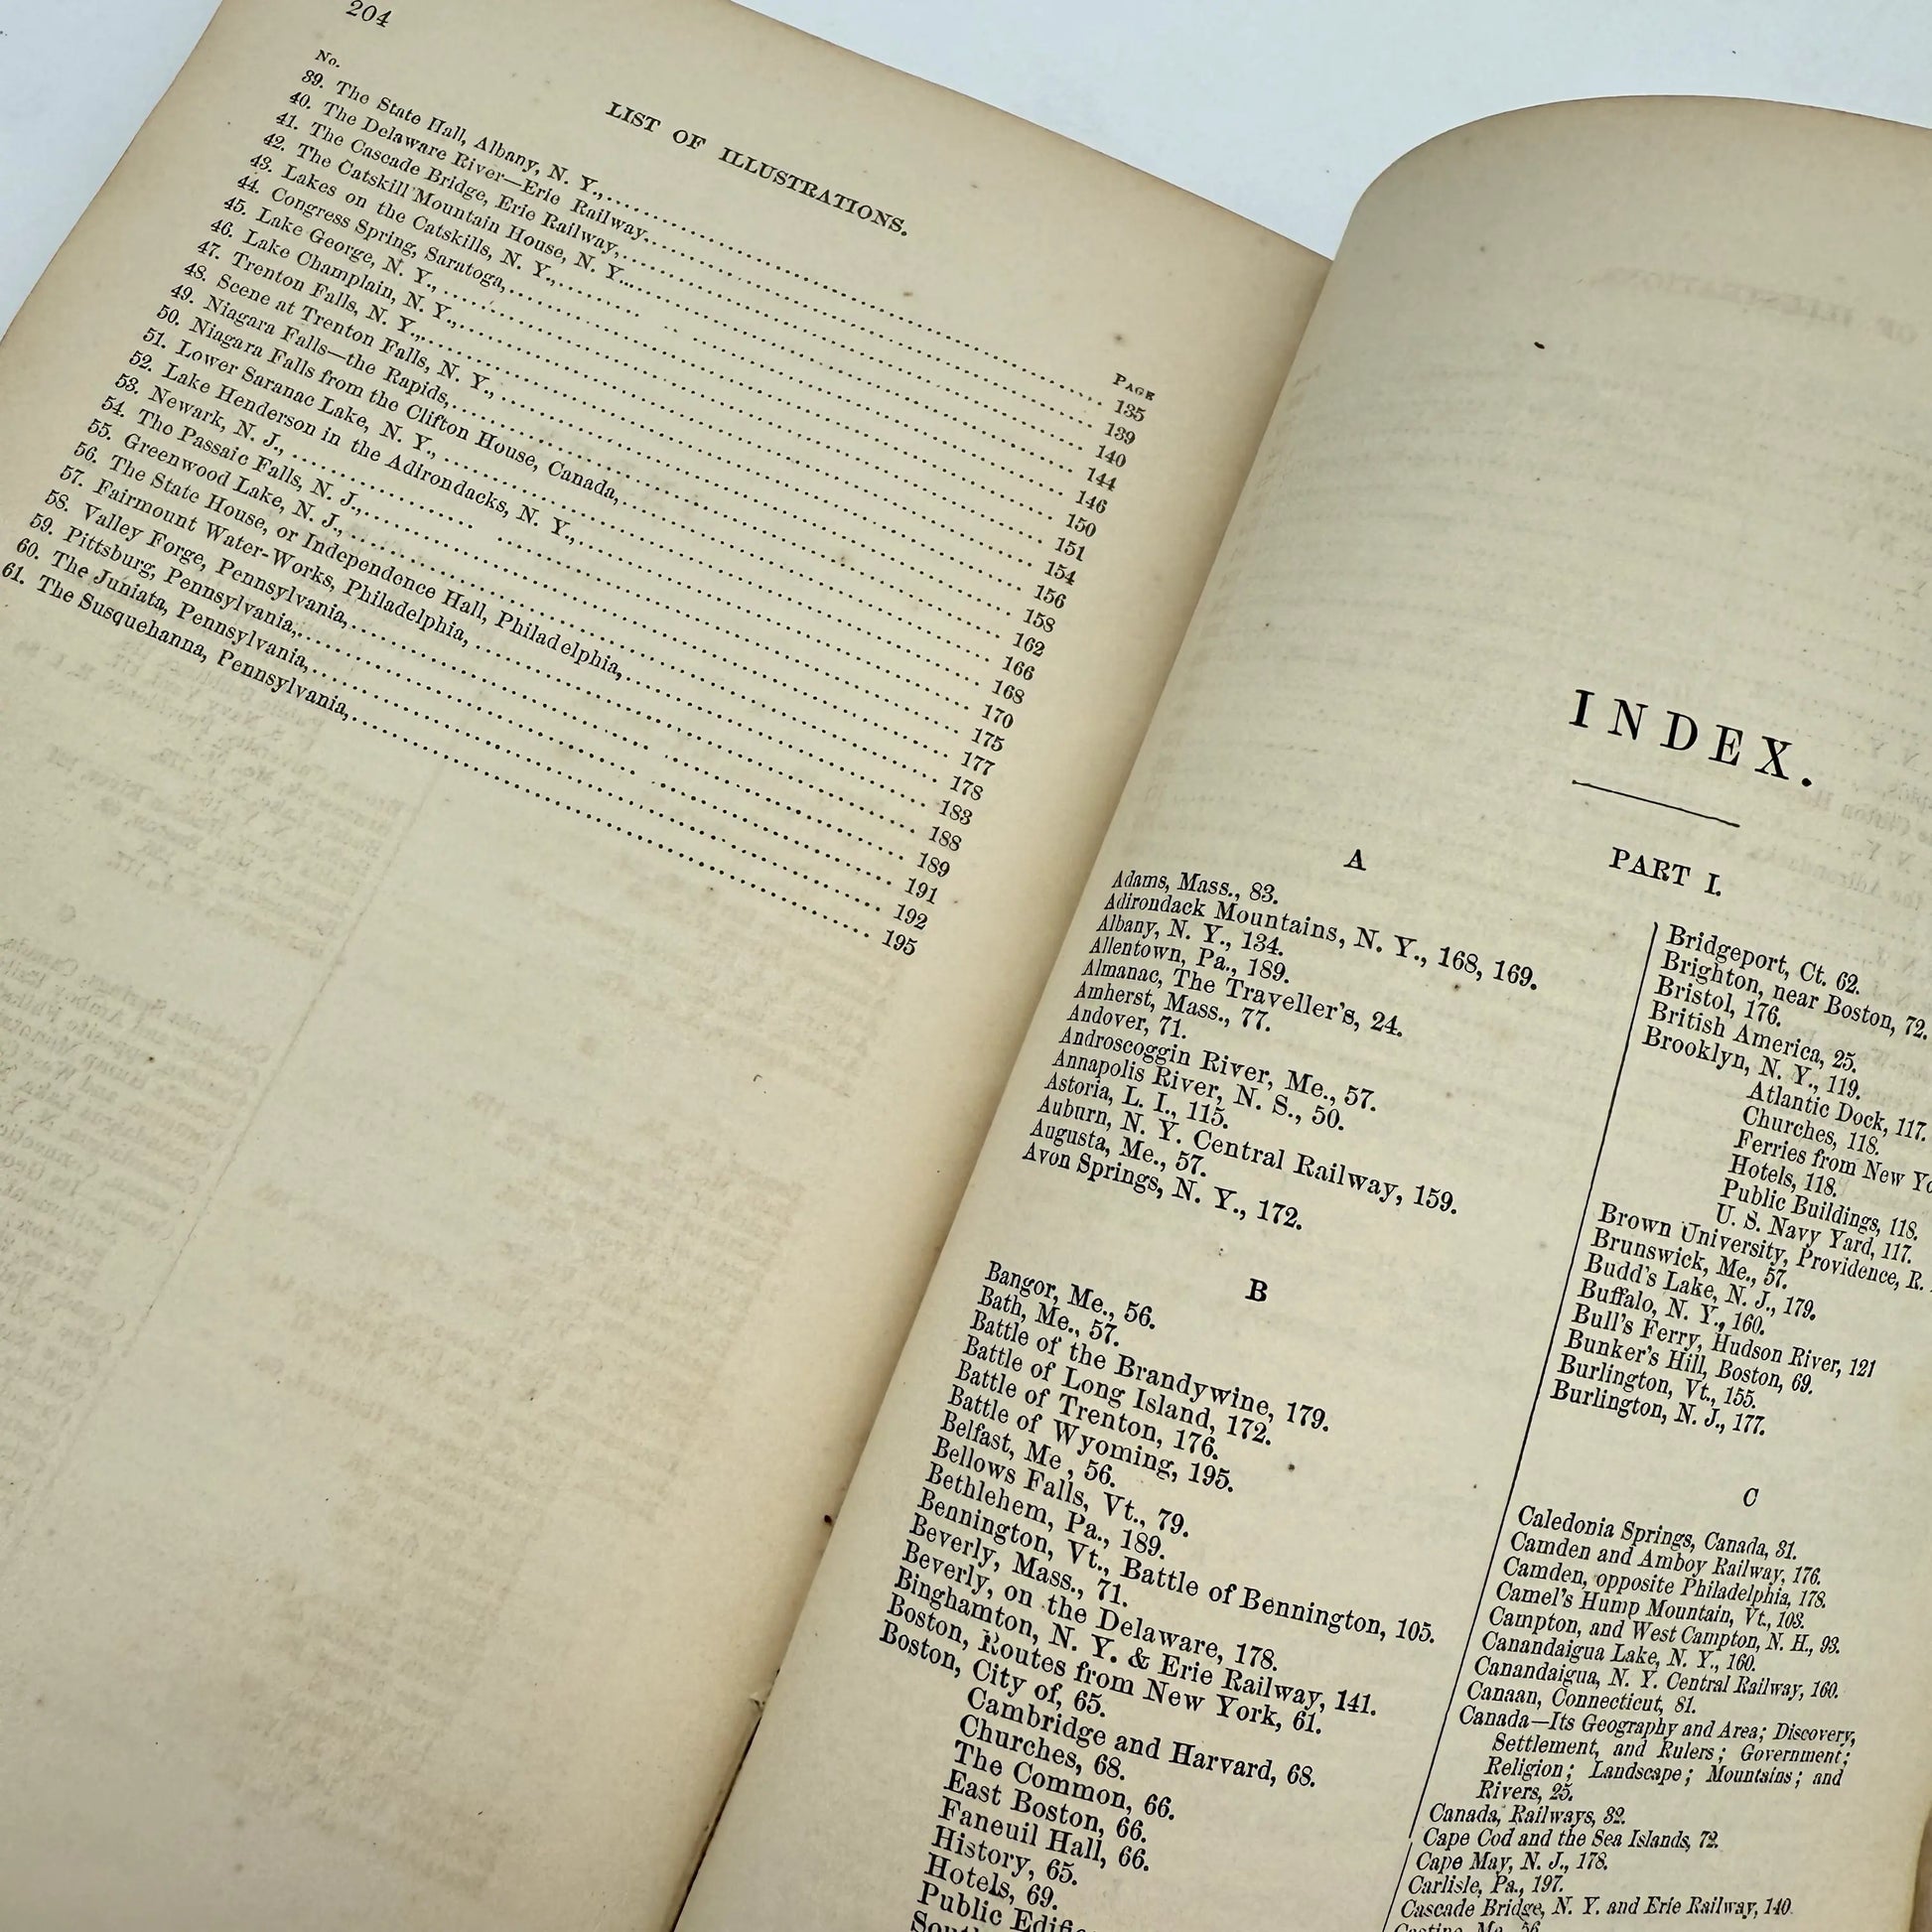 204
LIST OF ILLUSTRATIONS.
No.
PAGE
39. The State Hall, Albany, N. Y.,........ 135
40. The Delaware River—Erie Railway,........ 139
41. The Cascade Bridge, Erie Railway,........ 140
42. The Catskill Mountain House, N. Y........ 144
43. Lakes on the Catskills, N. Y.,........ 146
44. Congress Spring, Saratoga,........ 150
45. Lake George, N. Y.,........ 151
46. Lake Champlain, N. Y.,........ 154
47. Trenton Falls, N. Y.,........ 156
48. Scene at Trenton Falls, N. Y.,........ 158
49. Niagara Falls—the Rapids,........ 162
50. Niagara Falls from the Clifton House, Canada,........ 166
51. Lower Saranac Lake, N. Y.,........ 168
52. Lake Henderson in the Adirondacks, N. Y.,........ 170
53. Newark, N. J.,........ 175
54. The Passaic Falls, N. J.,........ 177
55. Greenwood Lake, N. J.,........ 178
56. The State House, or Independence Hall, Philadelphia,........ 183
57. Fairmount Water-Works, Philadelphia,........ 188
58. Valley Forge, Pennsylvania,........ 189
59. Pittsburg, Pennsylvania,........ 191
60. The Juniata, Pennsylvania,........ 192
61. The Susquehanna, Pennsylvania,........ 195
INDEX.
PART I.
A
Adams, Mass., 83.
Adirondack Mountains, N. Y., 168, 169.
Albany, N. Y., 134.
Allentown, Pa., 189.
Almanac, The Traveller's, 24.
Amherst, Mass., 77.
Andover, 71.
Androscoggin River, Me., 57.
Annapolis River, N. S., 50.
Astoria, L. I., 115.
Auburn, N. Y. Central Railway, 159.
Augusta, Me., 57.
Avon Springs, N. Y., 172.
B
Bangor, Me., 56.
Bath, Me., 57.
Battle of the Brandywine, 179.
Battle of Long Island, 172.
Battle of Trenton, 176.
Battle of Wyoming, 195.
Belfast, Me , 56.
Bellows Falls, Vt., 79.
Bethlehem, Pa., 189.
Bennington, Vt., Battle of Bennington, 105.
Beverly, Mass., 71.
Beverly, on the Delaware, 178.
Binghamton, N. Y. & Erie Railway, 141.
Boston, Routes from New York, 61.
Boston, City of, 65.
Cambridge and Harvard, 68.
Churches, 68.
The Common, 66.
East Boston, 66.
Faneuil Hall, 66.
History, 65.
Hotels, 69.
Public
Bridgeport, Ct. 62.
Brighton, near Boston, 72.
Bristol, 176.
British America, 25.
Brooklyn, N. Y., 119.
Atlantic Dock, 117.
Churches, 118.
Ferries from New
Hotels, 118.
Public Buildings, 118.
U. S. Navy Yard, 117.
Brown University, Providence, R.
Brunswick, Me., 57.
Budd's Lake, N. J., 179.
Buffalo, N. Y., 160.
Bull's Ferry, Hudson River, 121
Bunker's Hill, Boston, 69.
Burlington, Vt., 155.
Burlington, N. J., 177.
C
Caledonia Springs, Canada, 31.
Camden and Amboy Railway, 176.
Camden, opposite Philadelphia, 178.
Camel's Hump Mountain, Vt., 103.
Campton, and West Campton, N. H., 93.
Canandaigua Lake, N. Y., 160.
Canandaigua, N. Y. Central Railway, 160.
Canaan, Connecticut, 81.
Canada—Its Geography and Area; Discovery,
Settlement, and Rulers; Government;
Religion; Landscape; Mountains; and
Rivers, 25.
Canada, Railways, 32.
Cape Cod and the Sea Islands, 72.
Cape May, N. J., 178.
Carlisle, Pa., 197.
Cascade Bridge, N. Y. and Erie Railway, 140